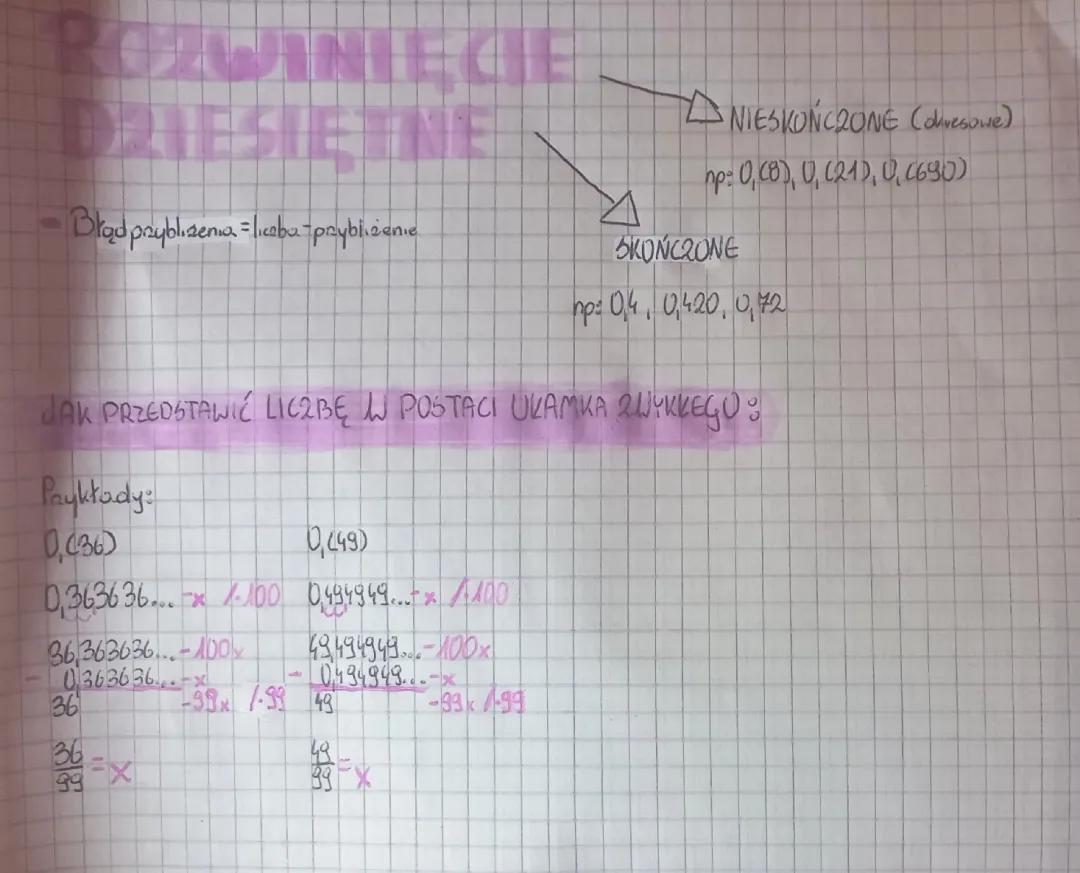 ROZWINIĘCIE
DZIESIĘTNE
NIESKOŃCZONE (okresowe)
np: 0,(8), 0,(21), 0,(690)
- Błąd przybliżenia = liczba - przybliżenie
SKOŃCZONE
np: 0,4, 0,420, 0,72
JAK PRZEDSTAWIĆ LICZBĘ W POSTACI UŁAMKA ZWYKŁEGO:
Przykłady:
0,(36) 0,(49)
0,363636... = x /·100 0,494949... = x /·100
36,363636... = 100x 49,494949... = 100x
- 0,363636... = x - 0,494949... = x
36 = 99x /:99 49 = 99x /:99
36/99 = x 49/99 = x